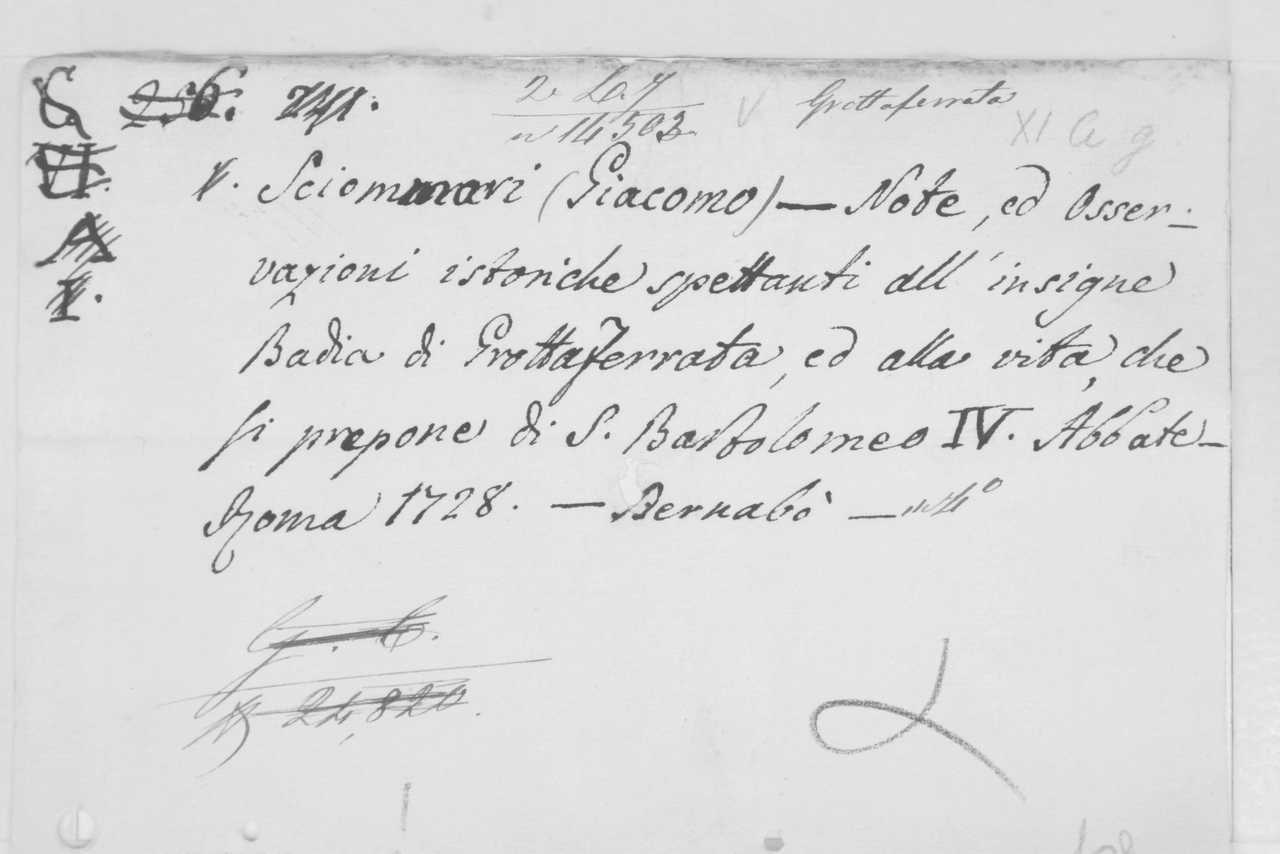 2 L. 7 Grottaferrata
n 14503 XI a g
Sciommari (Giacomo) — Note, ed Osser-
vazioni istoriche spettanti all' insigne
Badia di Grottaferrata, ed alla vita, che
si prepone di S. Bartolomeo IV. Abbate —
Roma 1728. — Bernabò — in 4°
G. C.
N 24,820.